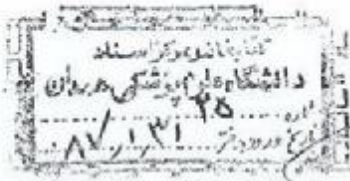 کتابخانه و مرکز اسناد
دانشگاه علوم پزشکی
شماره
تاریخ ورود ۸۷/۱/۳۱